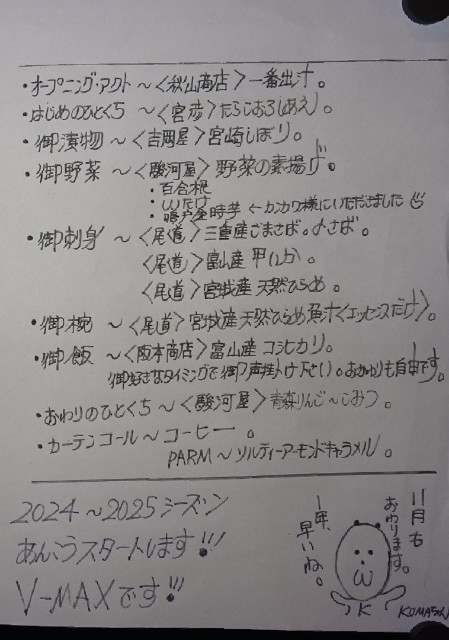 ・オープニング・アクト～〈秋山商店〉一番出汁。
・はじめのひとくち～〈宮歩〉たらこおろし
・御漬物～〈吉岡屋〉宮崎しぼり。
・御野菜～〈駿河屋〉野菜の素揚げ。
・百合根
・しいたけ
・時芋 ←カンカワ様にいただきました
・御刺身～〈尾道〉三重産ごまさば。〆さば。
〈尾道〉富山産 甲いか。
〈尾道〉宮城産 天然ひらめ。
・御椀～〈尾道〉宮城産天然ひらめ魚汁〈エッセンスだけ〉。
・御飯～〈阪本商店〉富山産 コシヒカリ。
御好きなタイミングで御声掛け下さい。おかわりも自由です。
・おわりのひとくち～〈駿河屋〉青森りんご～こみつ。
・カーテンコール～コーヒー。
PARM～ソルティーアーモンドキャラメル。
2024～2025シーズン
あんこうスタートします!!!
V-MAXです!!!
11月も
おわります。
1年、
早いね。
K